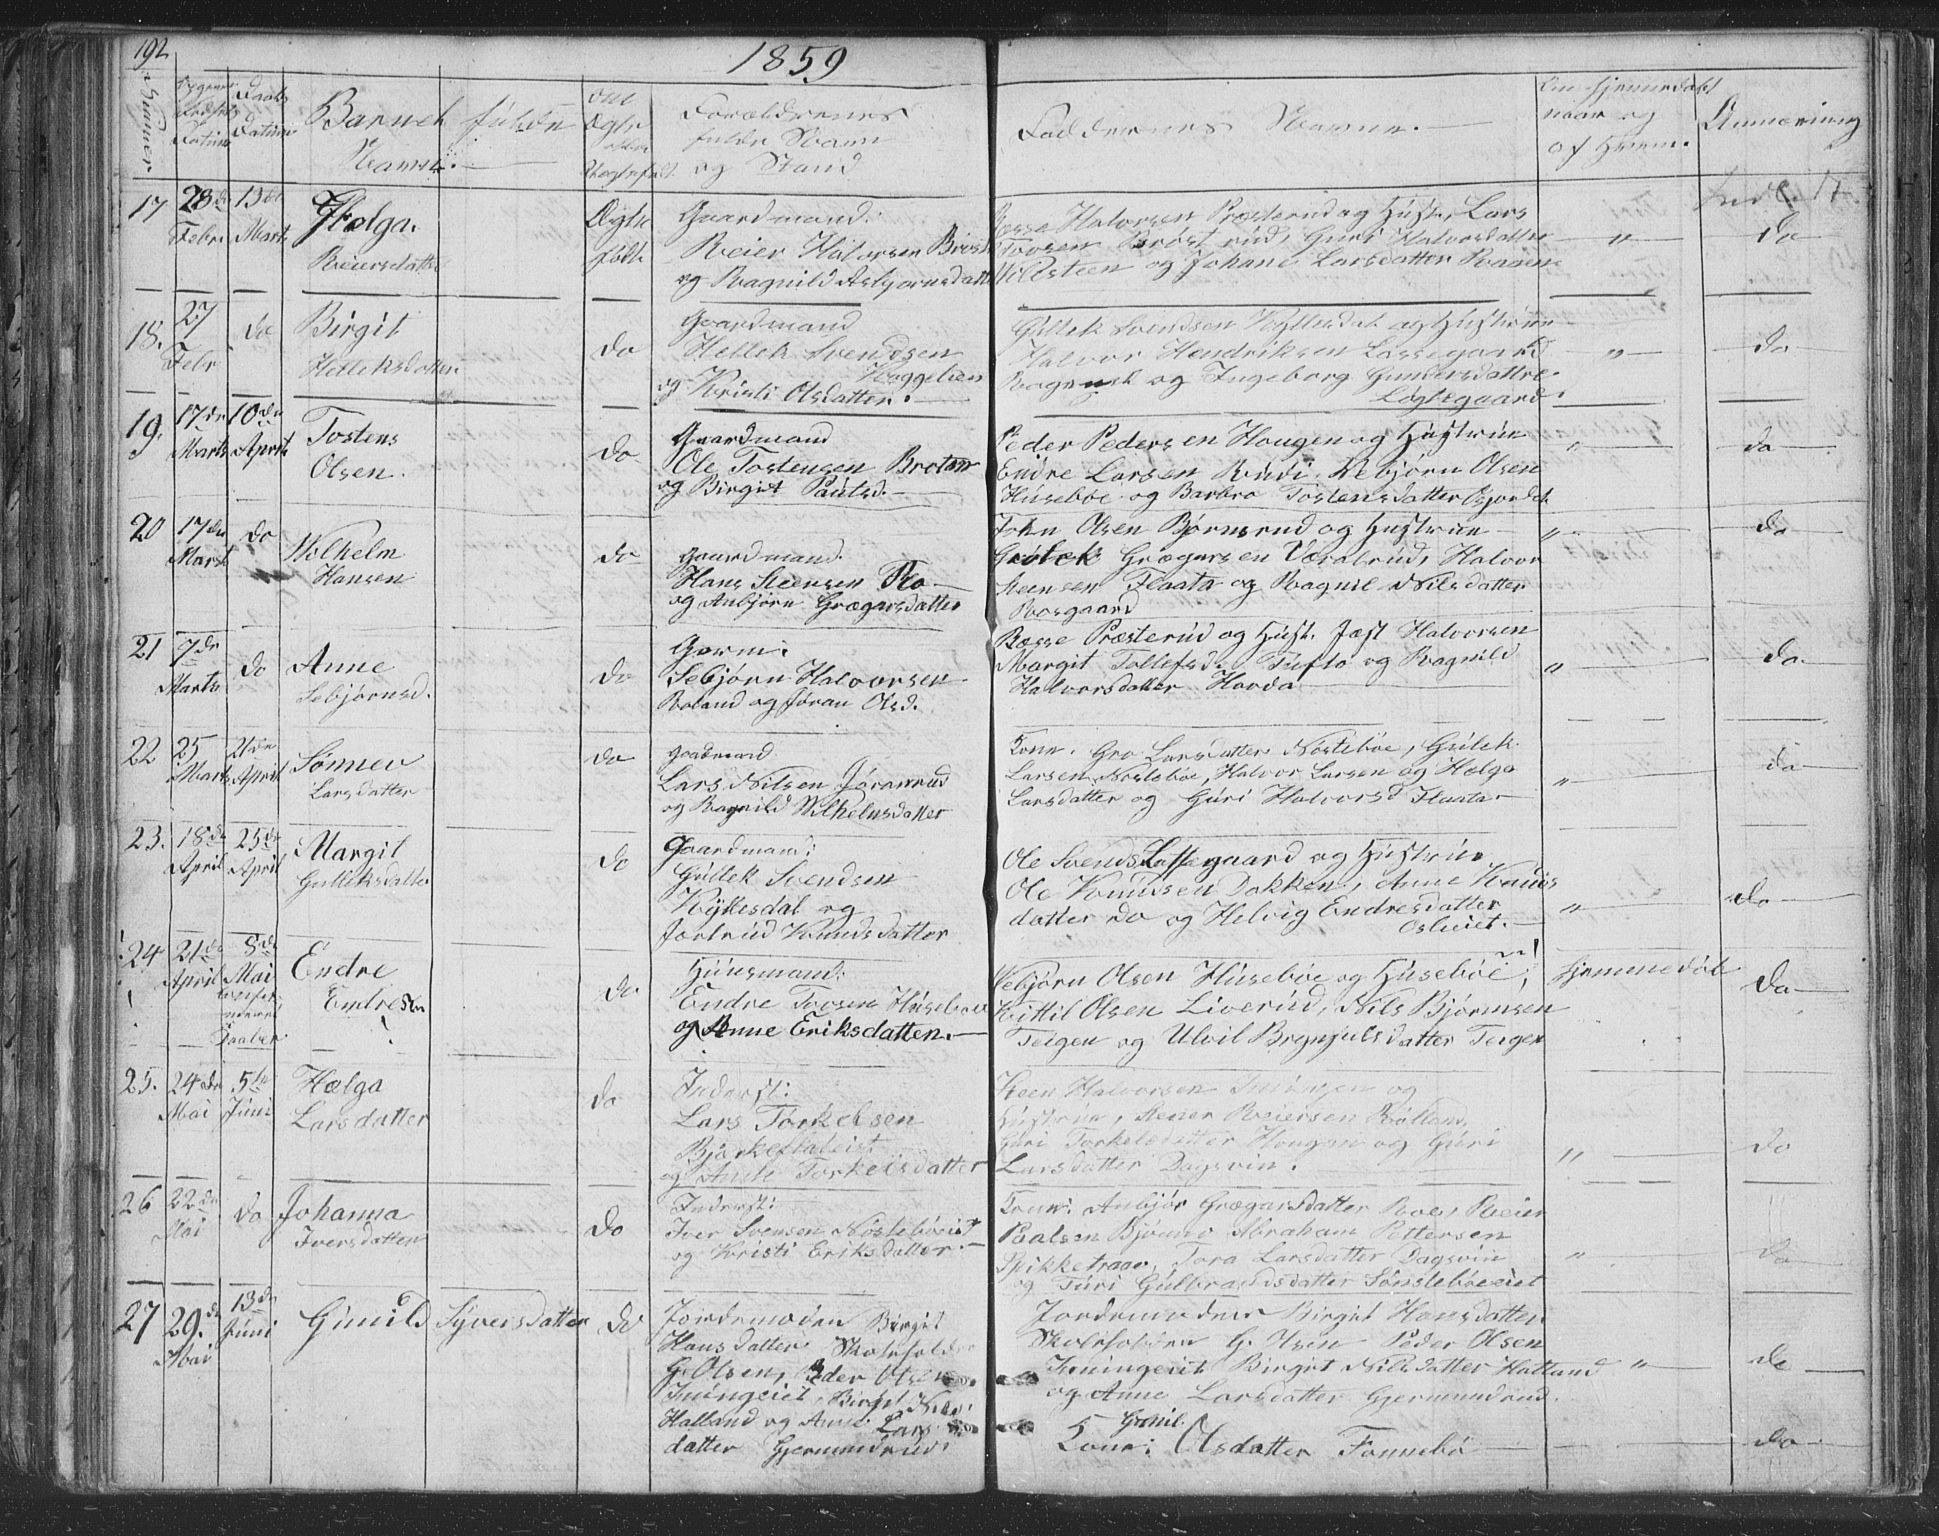 192
1859
Nummer.
Datum
Daabs
Datum
Barnets fulde
Navn.
om
Ægte
eller
Forældrenes
fulde Navn
og Stand
Faddernes Navne.
Om hjemmedøbt
naar og
af hvem.
Anmærkning
17
28de
Febr.
13de
Marts
Helga
Reiersdatter
Ægte
født
Gaardmand:
Reier Halvorsen
og Ragnild Asbjørnsdatt
Halvorsen Præsterud og Hustr, Lars
Tovsen Brøstrud, Guri Halvorsdatter
Villsteen og Johane Larsdatter
"
do
18.
27
Febr
do
Birgit
Helleksdatter
do
Gaardmand
Hellek Svendsen
og Kristi Olsdatter.
Gullek Svendsen og Hustrue
Halvor Hendriksen Lossegaard
og Ingeborg Gundersdatter
"
do
19.
17de
Marts
10de
April
Tostens
Olsen.
do
Gaardmand
Ole Tostensen Broten
og Birgit Paulsd.
Peder Pedersen Haugen og Hustrue
Endre Larsen Rudi, Vebjørn Olsen
Huseboe og Barbro Tostensdatter
"
do
20
17de
Marts
do
Wilhelm
Hansen
do
Gaardmand.
Hans Steensen Roe
og Anbjørn Grægarsdatter
John Olsen Bjørnsrud og Hustrue
Gullek Grægarsen Væralrud, Halvor
Steensen Flaata og Ragnil Nilsdatter
Roegaard
"
do
21
7de
Marts
do
Anne
Sebjørnsd.
do
Gaarm:
Sebjørn Halvorsen
Roland og Jøran Olsd.
Bosse Præsterud og Hust. Jøst Halvorsen
Margit Tollefsd. Tufto og Ragnild
Halvorsdatter Hovda
"
do
22
25
Marts
21de
April
Sønnev
Larsdatter
do
Gaadmand
Lars Nilsen Jøranrud
og Ragnild Wilhelmsdatter
Kone. Gro Larsdatter Nosteböe, Gulek
Larsen Nosteböe, Halvor Larsen og Helga
Larsdatter og Guri Halvorsd Flaata
"
do
23.
18de
April
25de
April
Margit
Gulleksdatter
do
Gaardmand:
Gullek Svendsen
og
Jortrud Knudsdatter
Ole Svends Lossegaard og Hustrue
Ole Knudsen Dokken, Anne Knuds
datter do og Helvig Endresdatter
"
do
24
21de
April
8de
Mai
Endre
Endresen
do
Huusmand:
Endre Tovsen Huseboe
og Anne Eriksdatter.
Vebjørn Olsen Huseböe og Huseböe,
Kittil Olsen Liverud, Nils Bjørnsen
Teigen og Ulvil Brynjulsdatter Teigen
hjemmedöbt
do
25.
24de
Mai
5te
Juni
Hælga
Larsdatter
do
Inderst:
Lars Torkelsen
og Anne Torkelsdatter
Steen Halvorsen og
Hustrue, Reiersen
Guri Torkelsdatter Haugen og Guri
Larsdatter Dagsvin.
"
do
26
22de
Mai
do
Johanna
Iversdatter
do
Inderst:
Iver Svensen Nösteböeiet
og Kristi Eriksdatter.
Kone: Anbjör Grægarsdatter Roe, Reier
Paalsen Bjömo Abraham Pettersen
Tora Larsdatter Dagsvin
og Turi Gulbrandsdatter Sönsteböeeiet
"
do
27
29de
Mai
13de
Juni
Gunild Syversdatter
do
Jordemoden Birgit
Hansdatter Skoleholder
G. Olsen, Peder Olsen
Iningeiet, Birgit Nils
Halland og Anne Lars
datter Gjermundrud.
Jordemoder Birgit Hansdatter
Skoleholder G. Olsen Peder Olsen
Iningeiet Birgit Nilsdatter Halland
og Anne Larsdatter Gjermundrud.
"
do
Gunil
Kone: Olsdatter Fonnebö
do